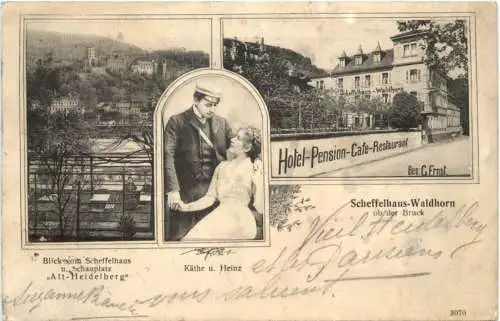 Hotel-Pension-Café-Restaurant
Bes: C. Ernst.
Scheffelhaus-Waldhorn
ob der Bruck
Blick vom Scheffelhaus
u. Schauplatz
„Alt-Heidelberg“
Käthe u. Heinz
Vieil Heidelberg
et les
Suzanne vous saluent.
3070